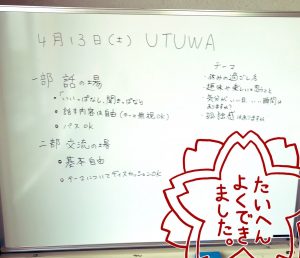 4月13日(土) UTUWA
一部 話の場
・いいっぱなし、聞きっぱなし
・話す内容は自由(テーマ無視OK)
・パスOK
二部 交流の場
・基本自由
・テーマについてディスカッションOK
テーマ
・休みの過ごし方
・趣味や楽しいと思うこと
・気分がいい日、いい瞬間は
ありますか?
・孤独感はありますか
たいへん
よくでき
ました。